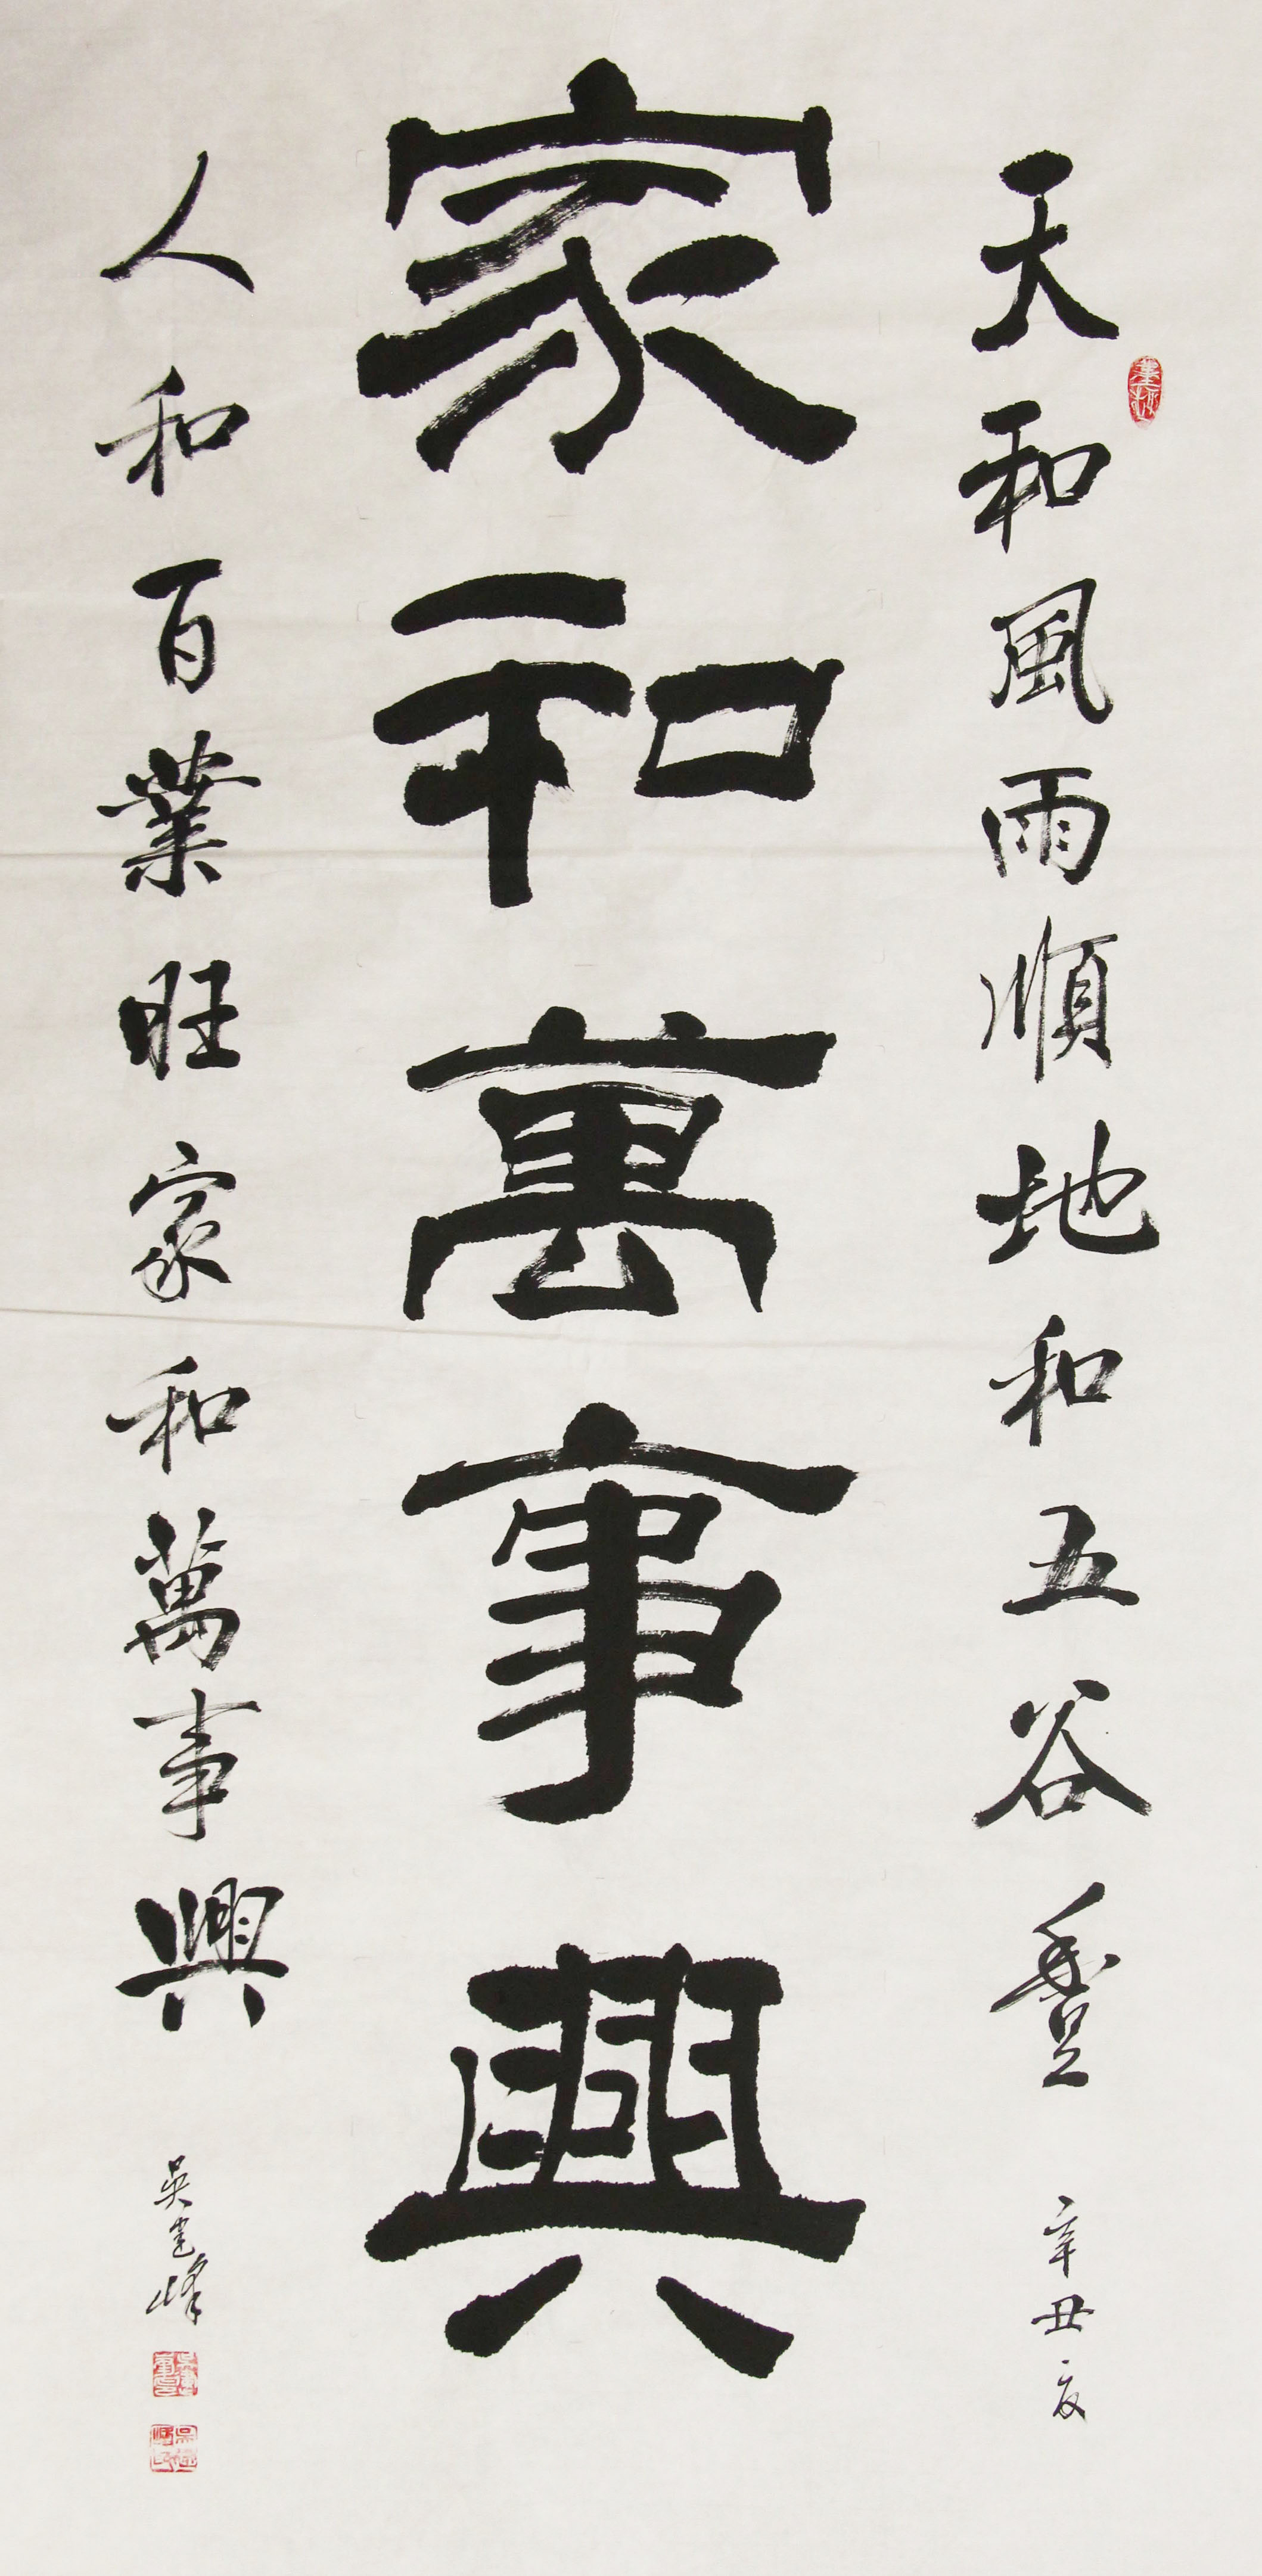 天和風雨順地和五谷豐
辛丑夏
家和萬事興
人和百業旺家和萬事興
吴建峰